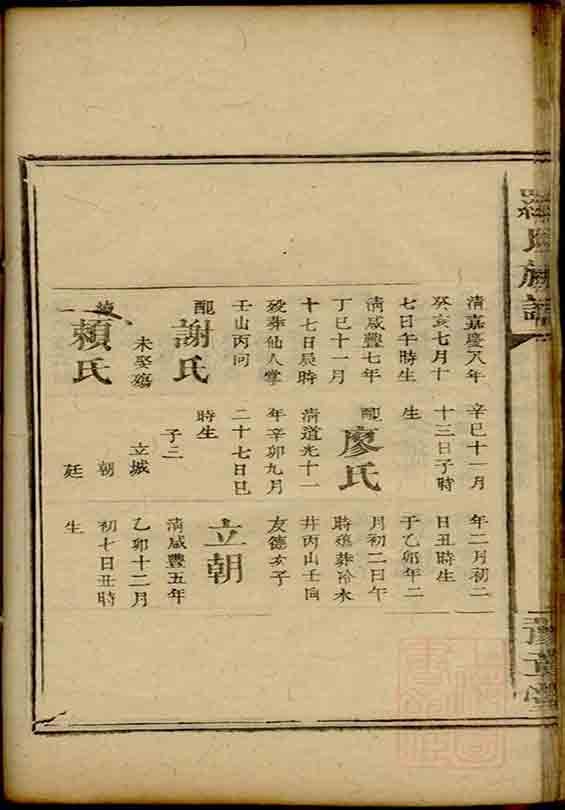 羅氏族譜
豫章堂
清嘉慶八年
癸亥七月十
七日午時生
清咸豐七年
丁巳十一月
十七日辰時
歿葬仙人掌
壬山丙向
配謝氏
未娶殤
賴氏
辛巳十一月
十三日子時
生
配廖氏
清道光十一
年辛卯九月
二十七日巳
時生
子三
立城
朝
廷
年二月初二
日丑時生
于乙卯年二
月初二日午
時殤葬冷水
井丙山壬向
友德亥子
立朝
清咸豐五年
乙卯十二月
初七日丑時
生